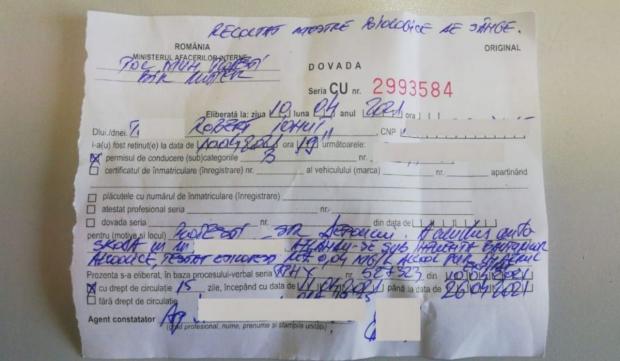 RECOLTAT MOSTRE BIOLOGICE DE SÂNGE.
ROMÂNIA
MINISTERUL AFACERILOR INTERNE
ORIGINAL
DOVADA
Seria CU nr. 2993584
Eliberată la: ziua 10 luna 04 anul 2021 ora
Dlui./dnei. ROBERT IONUȚ CNP
i-a(u) fost reținut(e) la data de 10042021 ora 19 următoarele:
permisul de conducere (sub)categoriile B nr.
certificatul de înmatriculare (înregistrare) nr. al vehiculului (marca) nr. aparținând
plăcuțele cu numărul de înmatriculare (înregistrare)
atestat profesional seria nr.
dovada seria nr. din data de
pentru (motive și locul) STR A condus auto
SKODA cu nr. AFLÂNDU-SE SUB INFLUENȚA BĂUTURILOR
ALCOOLICE TESTAT 0,04 MG/L ALCOOL PUR
Prezenta s-a eliberat, în baza procesului-verbal seria nr. 527323 din 10042021
cu drept de circulație 15 zile, începând cu data de 11 04 2021 până la data 26042021
fără drept de circulație
Agent constatator Ag
(grad profesional, nume, prenume și ștampila unității)